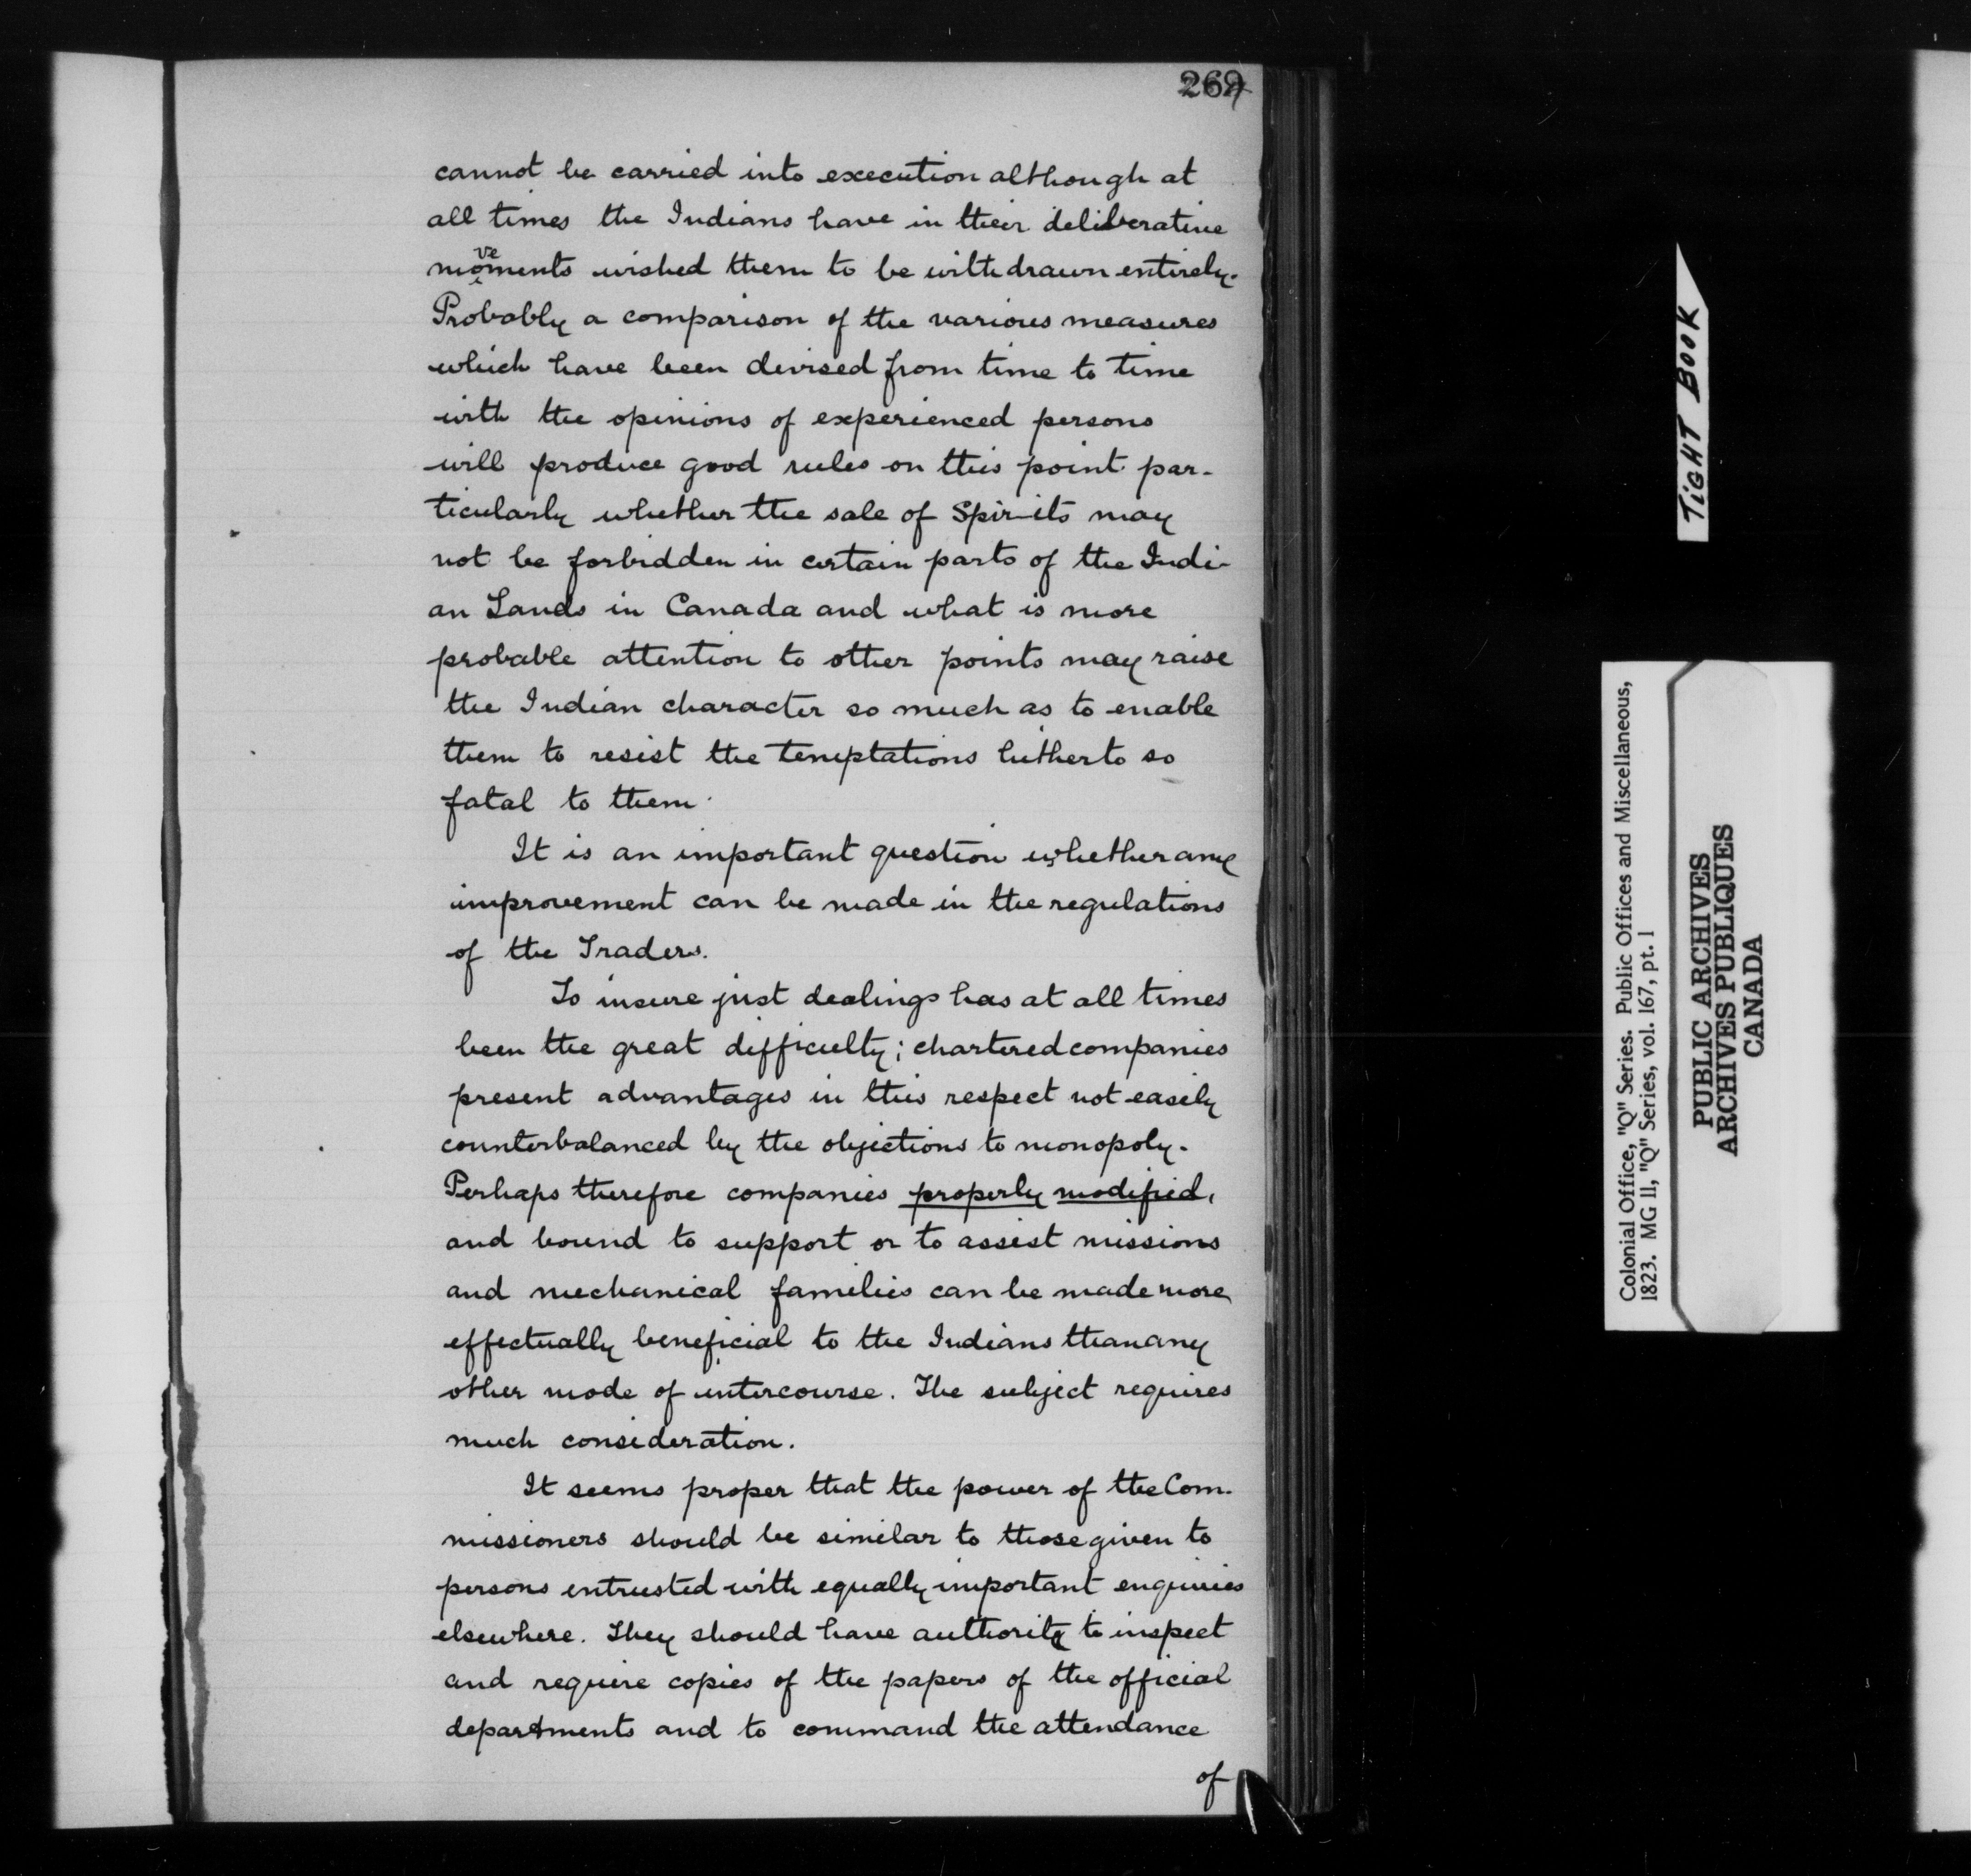 269
cannot be carried into execution although at
all times the Indians have in their deliberative
movements wished them to be withdrawn entirely.
Probably a comparison of the various measures
which have been devised from time to time
with the opinions of experienced persons
will produce good rules on this point par-
ticularly whether the sale of Spirits may
not be forbidden in certain parts of the Indi-
an Lands in Canada and what is more
probable attention to other points may raise
the Indian character so much as to enable
them to resist the temptations hitherto so
fatal to them.
It is an important question whether any
improvement can be made in the regulations
of the Traders.
To insure just dealings has at all times
been the great difficulty; chartered companies
present advantages in this respect not easily
counterbalanced by the objections to monopoly.
Perhaps therefore companies properly modified,
and bound to support or to assist missions
and mechanical families can be made more
effectually beneficial to the Indians than any
other mode of intercourse. The subject requires
much consideration.
It seems proper that the power of the Com-
missioners should be similar to those given to
persons entrusted with equally important enquiries
elsewhere. They should have authority to inspect
and require copies of the papers of the official
departments and to command the attendance
of
TIGHT BOOK
Colonial Office, "Q" Series. Public Offices and Miscellaneous,
1823. MG 11, "Q" Series, vol. 167, pt. 1
PUBLIC ARCHIVES
ARCHIVES PUBLIQUES
CANADA